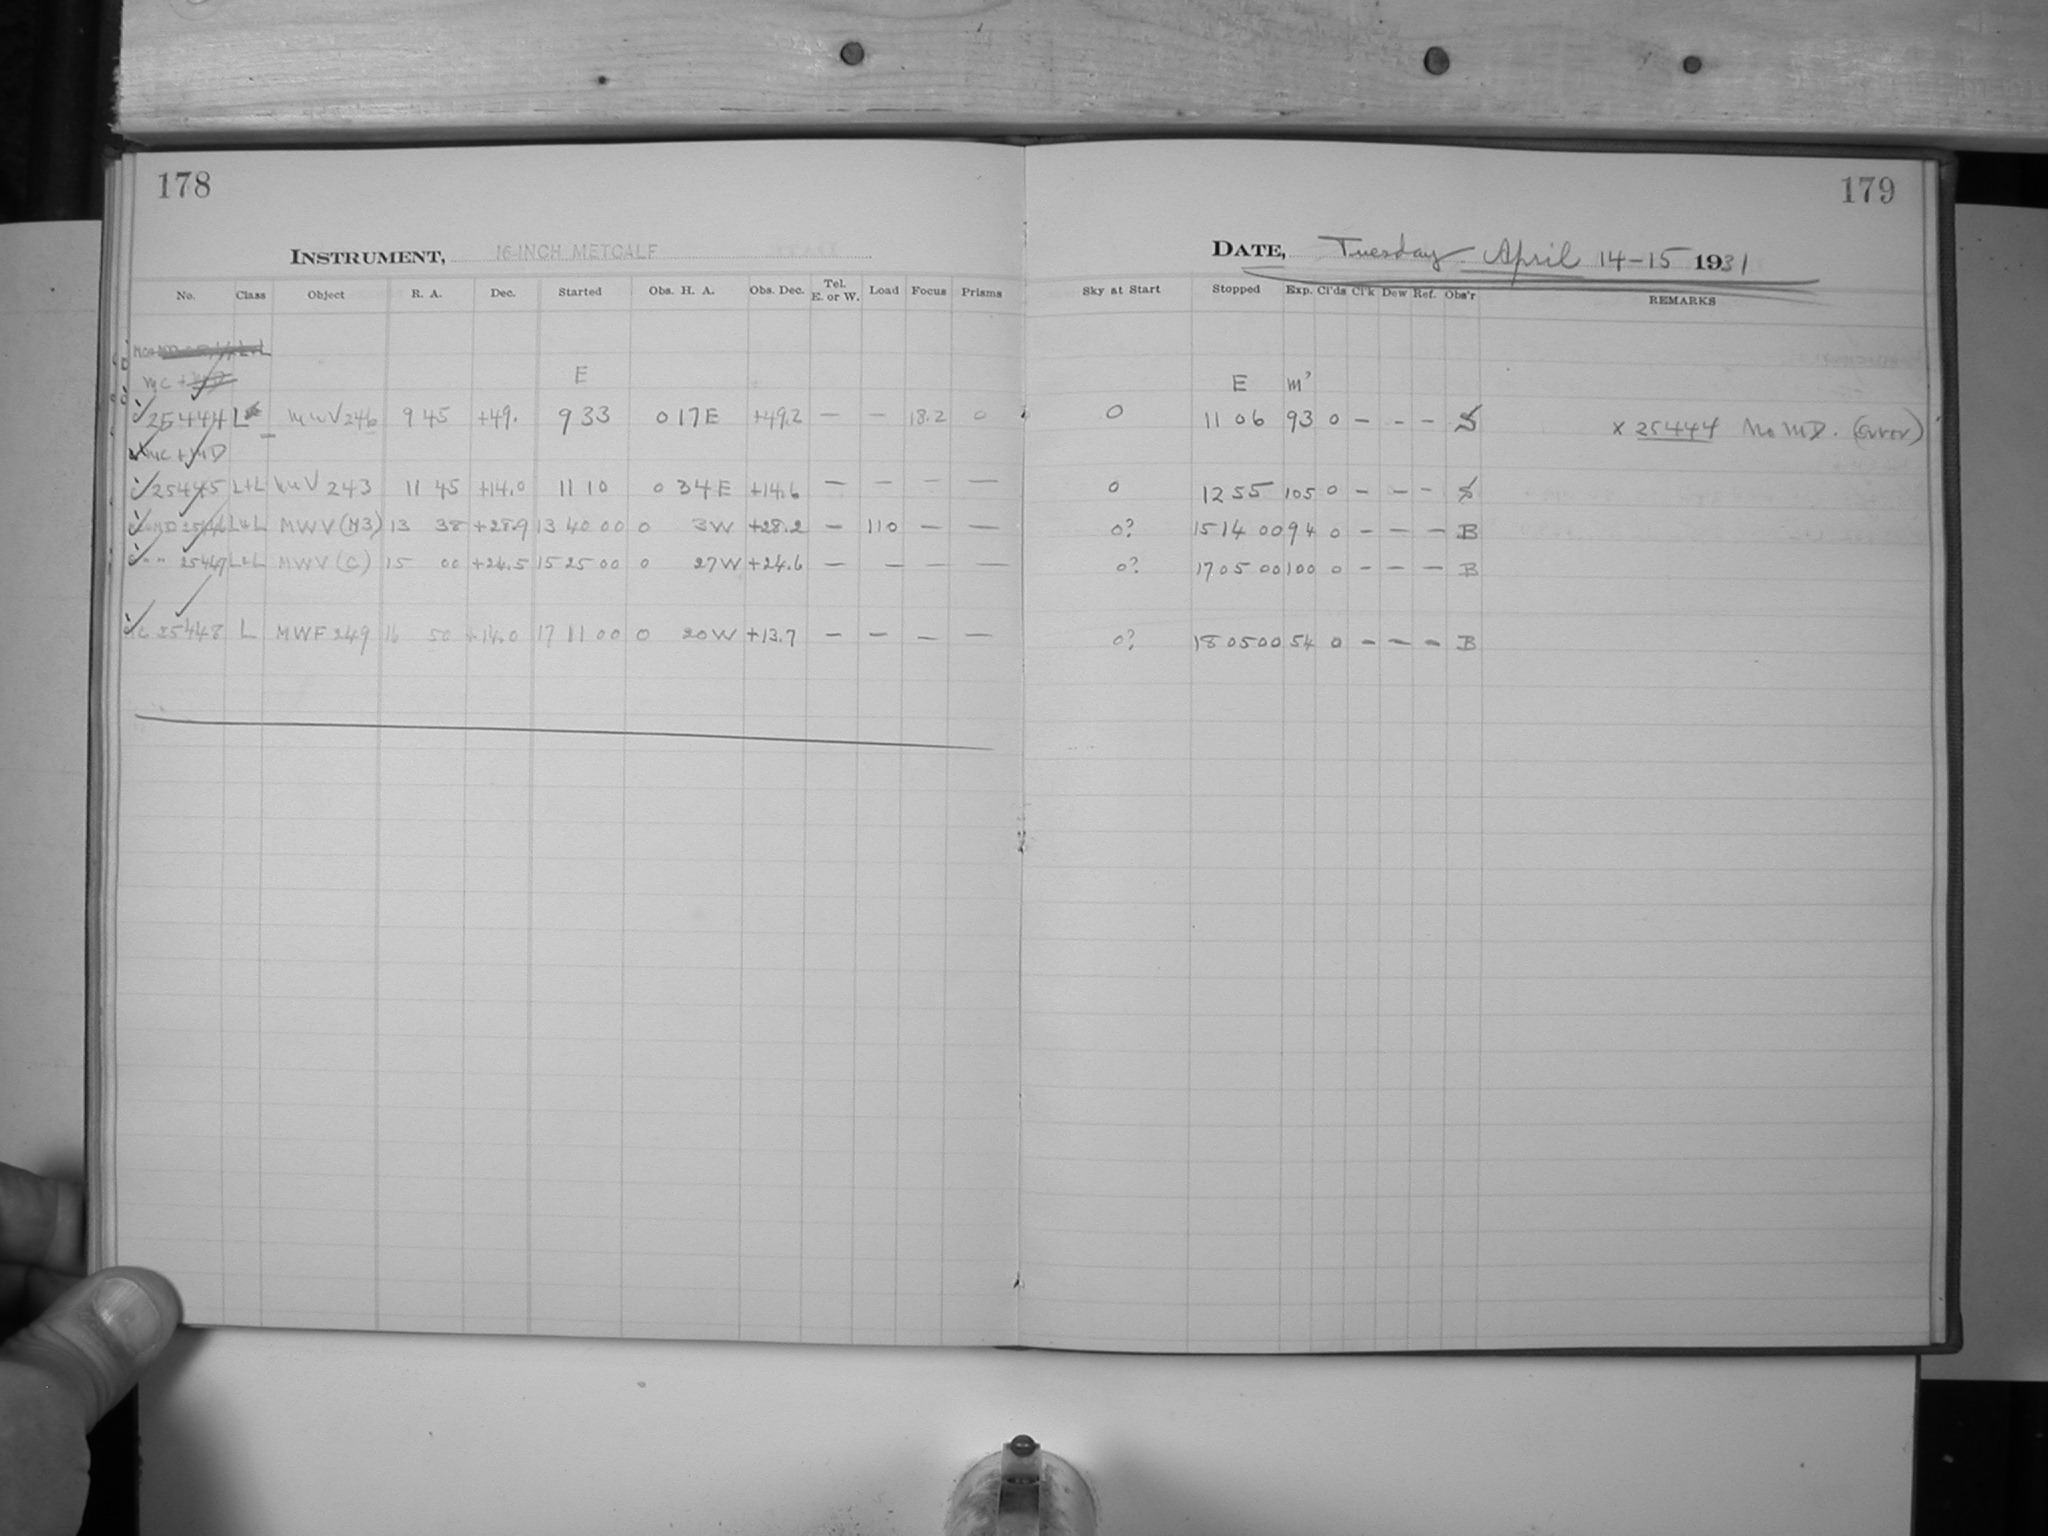 178
179
INSTRUMENT, 16-INCH METCALF
DATE, Tuesday April 14-15 1931
No. Class Object R. A. Dec. Started Obs. H. A. Obs. Dec. Tel. E. or W. Load Focus Prisms Sky at Start Stopped Exp. Cl'ds Cl'k Dew Ref. Obs'r REMARKS
MC + E E m
25444 L MWV 246 9 45 +49. 9 33 0 17 E +49.2 — — 18.2 0 0 11 06 93 0 — - - S x 25444 No MD. (Error)
MC + MD
25445 L+L MWV 243 11 45 +14.0 11 10 0 34 E +14.6 — — — — 0 12 55 105 0 — — - S
MD 25446 L+L MWV (M3) 13 38 +28.9 13 40 00 0 3W +28.2 — 110 — — 0? 15 14 00 94 0 — — — B
" " 25447 L+L MWV (C) 15 00 +24.5 15 25 00 0 27W +24.6 — — — — 0? 17 05 00 100 0 — — — B
MC 25448 L MWF 249 16 50 +14.0 17 11 00 0 20W +13.7 — — — — 0? 18 05 00 54 0 — — — B